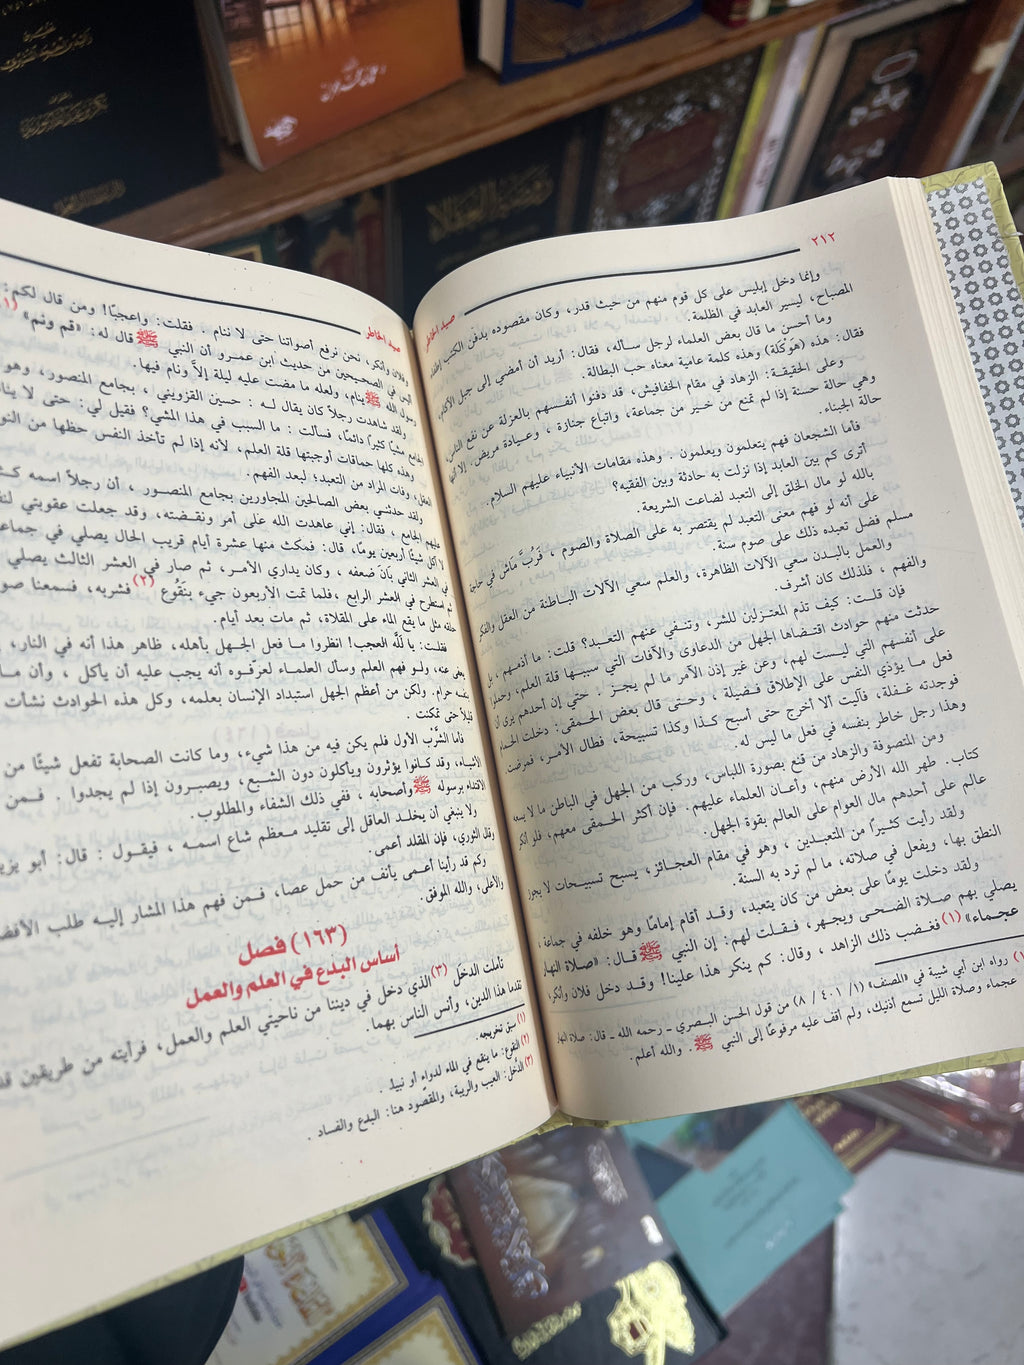 ٢١٢
صيد الخاطر
وإنما دخل إبليس على كل قوم منهم من حيث قدر، وكان مقصوده بدفن الكتب إطفاء
المصباح، ليسير العابد في الظلمة.
وما أحسن ما قال بعض العلماء لرجل سأله، فقال: أريد أن أمضي إلى جبل الأكام،
فقال: هذه (هَوْكَلَة) وهذه كلمة عامية معناه حب البطالة.
وعلى الحقيقة: الزهاد في مقام الخفافيش، قد دفنوا أنفسهم بالعزلة عن نفع الناس،
وهي حالة حسنة إذا لم تمنع من خير من جماعة، واتباع جنازة، وعيادة مريض. إلا أنها
حالة الجبناء.
فأما الشجعان فهم يتعلمون ويعلمون. وهذه مقامات الأنبياء عليهم السلام.
أترى كم بين العابد إذا نزلت به حادثة وبين الفقيه؟
بالله لو مال الخلق إلى التعبد لضاعت الشريعة.
على أنه لو فهم معنى التعبد لم يقتصر به على الصلاة والصوم، فَرُبَّ مَاشٍ في حاجة
مسلم فضل تعبده ذلك على صوم سنة.
والعمل بالبدن سعي الآلات الظاهرة، والعلم سعي الآلات الباطنة من العقل والفكر
والفهم، فلذلك كان أشرف.
فإن قلت: كيف تذم المعتزلين للشر، وتنفي عنهم التعبد؟ قلت: ما أذمهم، بل
حدثت منهم حوادث اقتضاها الجهل من الدعاوى والآفات التي سببها قلة العلم، وحملوا
على أنفسهم التي ليست لهم، وعن غير إذن الآمر ما لم يجز. حتى إن أحدهم يرى أن
فعل ما يؤذي النفس على الإطلاق فضيلة، وحتى قال بعض الحمقى: دخلت الحمام
فوجدته غفلة، فآليت ألا أخرج حتى أسبح كذا وكذا تسبيحة، فطال الأمر، فمرضت.
وهذا رجل خاطر بنفسه في فعل ما ليس له.
ومن المتصوفة والزهاد من قنع بصورة اللباس، وركب من الجهل في الباطن ما لا يسعه
كتاب. طهر الله الأرض منهم، وأعان العلماء عليهم. فإن أكثر الحمقى معهم، فلو أنكر
عالم على أحدهم مال العوام على العالم بقوة الجهل.
ولقد رأيت كثيرًا من المتعبدين، وهو في مقام العجائز، يسبح تسبيحات لا يجوز
النطق بها، ويفعل في صلاته، ما لم ترد به السنة.
ولقد دخلت يومًا على بعض من كان يتعبد، وقد أقام إمامًا وهو خلفه في جماعة
يصلي بهم صلاة الضحى ويجهر، فقلت لهم: إن النبي ﷺ قال: «صلاة النهار
عجماء» (١) فغضب ذلك الزاهد، وقال: كم ينكر هذا علينا! وقد دخل فلان وأنكر،
(١) رواه ابن أبي شيبة في «المصنف» (١/ ٤٠١ / ٨) من قول الحسن البصري ـ رحمه الله ـ قال: صلاة النهار
عجماء وصلاة الليل تسمع أذنيك، ولم أقف عليه مرفوعًا إلى النبي ﷺ. والله أعلم.
صيد الخاطر
وفلان وأنكر، نحن نرفع أصواتنا حتى لا ننام. فقلت: واعجبًا! ومن قال لكم:
أليس في الصحيحين من حديث ابن عمرو أن النبي ﷺ قال له: «قم ونم» (١)
رسول الله ﷺ ينام، ولعله ما مضت عليه ليلة إلاَّ ونام فيها.
ولقد شاهدت رجلاً كان يقال له: حسين القزويني، بجامع المنصور، وهو
الجامع مشيًا كثيرًا دائمًا، فسألت: ما السبب في هذا المشي؟ فقيل لي: حتى لا
وهذه كلها حماقات أوجبتها قلة العلم، لأنه إذا لم تأخذ النفس حظها من
العقل، وفات المراد من التعبد؛ لبعد الفهم.
ولقد حدثني بعض الصالحين المجاورين بجامع المنصور، أن رجلاً اسمه
عليهم الجامع، فقال: إني عاهدت الله على أمر ونقضته، وقد جعلت عقوبتي
لا آكل شيئًا أربعين يومًا، قال: فمكث منها عشرة أيام قريب الحال يصلي في
في العشر الثاني بان ضعفه، وكان يداري الأمر، ثم صار في العشر الثالث يصلي
ثم استطرح في العشر الرابع، فلما تمت الأربعون جيء بنَقُوع (٢) فشربه، فسمعنا
حلقه مثل ما يقع الماء على المقلاة، ثم مات بعد أيام.
فقلت: يا لَلَّه العجب! انظروا ما فعل الجهل بأهله، ظاهر هذا أنه في النار،
يعفى عنه، ولو فهم العلم وسأل العلماء لعرّفوه أنه يجب عليه أن يأكل، وأن
بنفسه حرام. ولكن من أعظم الجهل استبداد الإنسان بعلمه، وكل هذه الحوادث نشأت
قليلاً حتى تمكنت.
فأما الشِّرْب الأول فلم يكن فيه من هذا شيء، وما كانت الصحابة تفعل شيئًا من
الأشياء، وقد كانوا يؤثرون ويأكلون دون الشبع، ويصبرون إذا لم يجدوا. فمن
الاقتداء برسوله ﷺ وأصحابه، ففي ذلك الشفاء والمطلوب.
ولا ينبغي أن يخلد العاقل إلى تقليد معظم شاع اسمه، فيقول: قال: أبو
وقال الثوري، فإن المقلد أعمى.
وكم قد رأينا أعمى يأنف من حمل عصا، فمن فهم هذا المشار إليه طلب
والأعلى، والله الموفق.
(١٦٣) فصل
أساس البدع في العلم والعمل
تأملت الدخَل (٣) الذي دخل في ديننا من ناحيتي العلم والعمل، فرأيته من طريقين
تقدما هذا الدين، وأنس الناس بهما.
(١) سبق تخريجه.
(٢) النقوع: ما ينقع في الماء لدواءٍ أو نبيذ.
(٣) الدَّخل: العيب والريبة، والمقصود هنا: البدع والفساد.